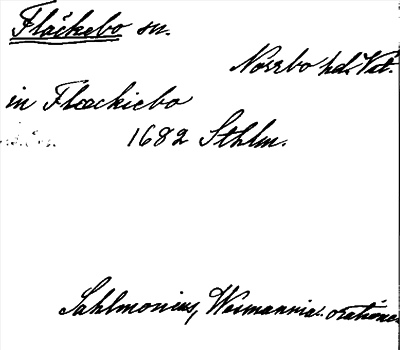 Fläckebo sn.
Norrbo hd. Vstm.
in Flæckiebo
1682 Sthlm.
Sahlmonius, Wesmannia. oratione